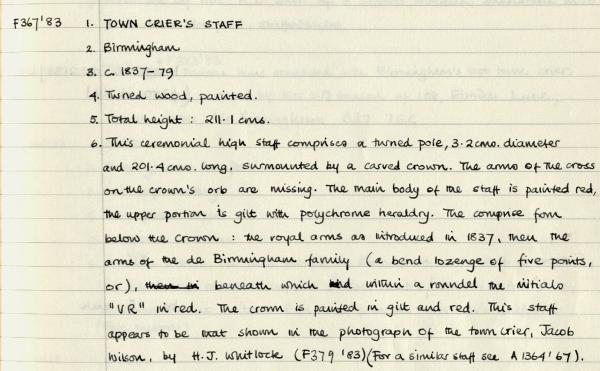 F367'83 1. TOWN CRIER'S STAFF
2. Birmingham
3. c. 1837-79
4. Turned wood, painted.
5. Total height : 211.1 cms.
6. This ceremonial high staff comprises a turned pole, 3.2 cms. diameter
and 201.4 cms. long, surmounted by a carved crown. The arms of the cross
on the crown's orb are missing. The main body of the staff is painted red,
the upper portion is gilt with polychrome heraldry. The comprise from
below the crown : the royal arms as introduced in 1837, then the
arms of the de Birmingham family (a bend lozenge of five points,
or), then in beneath which within a roundel the initials
"VR" in red. The crown is painted in gilt and red. This staff
appears to be that shown in the photograph of the town crier, Jacob
Wilson, by H.J. Whitlock (F379'83) (For a similar staff see A1364'67).